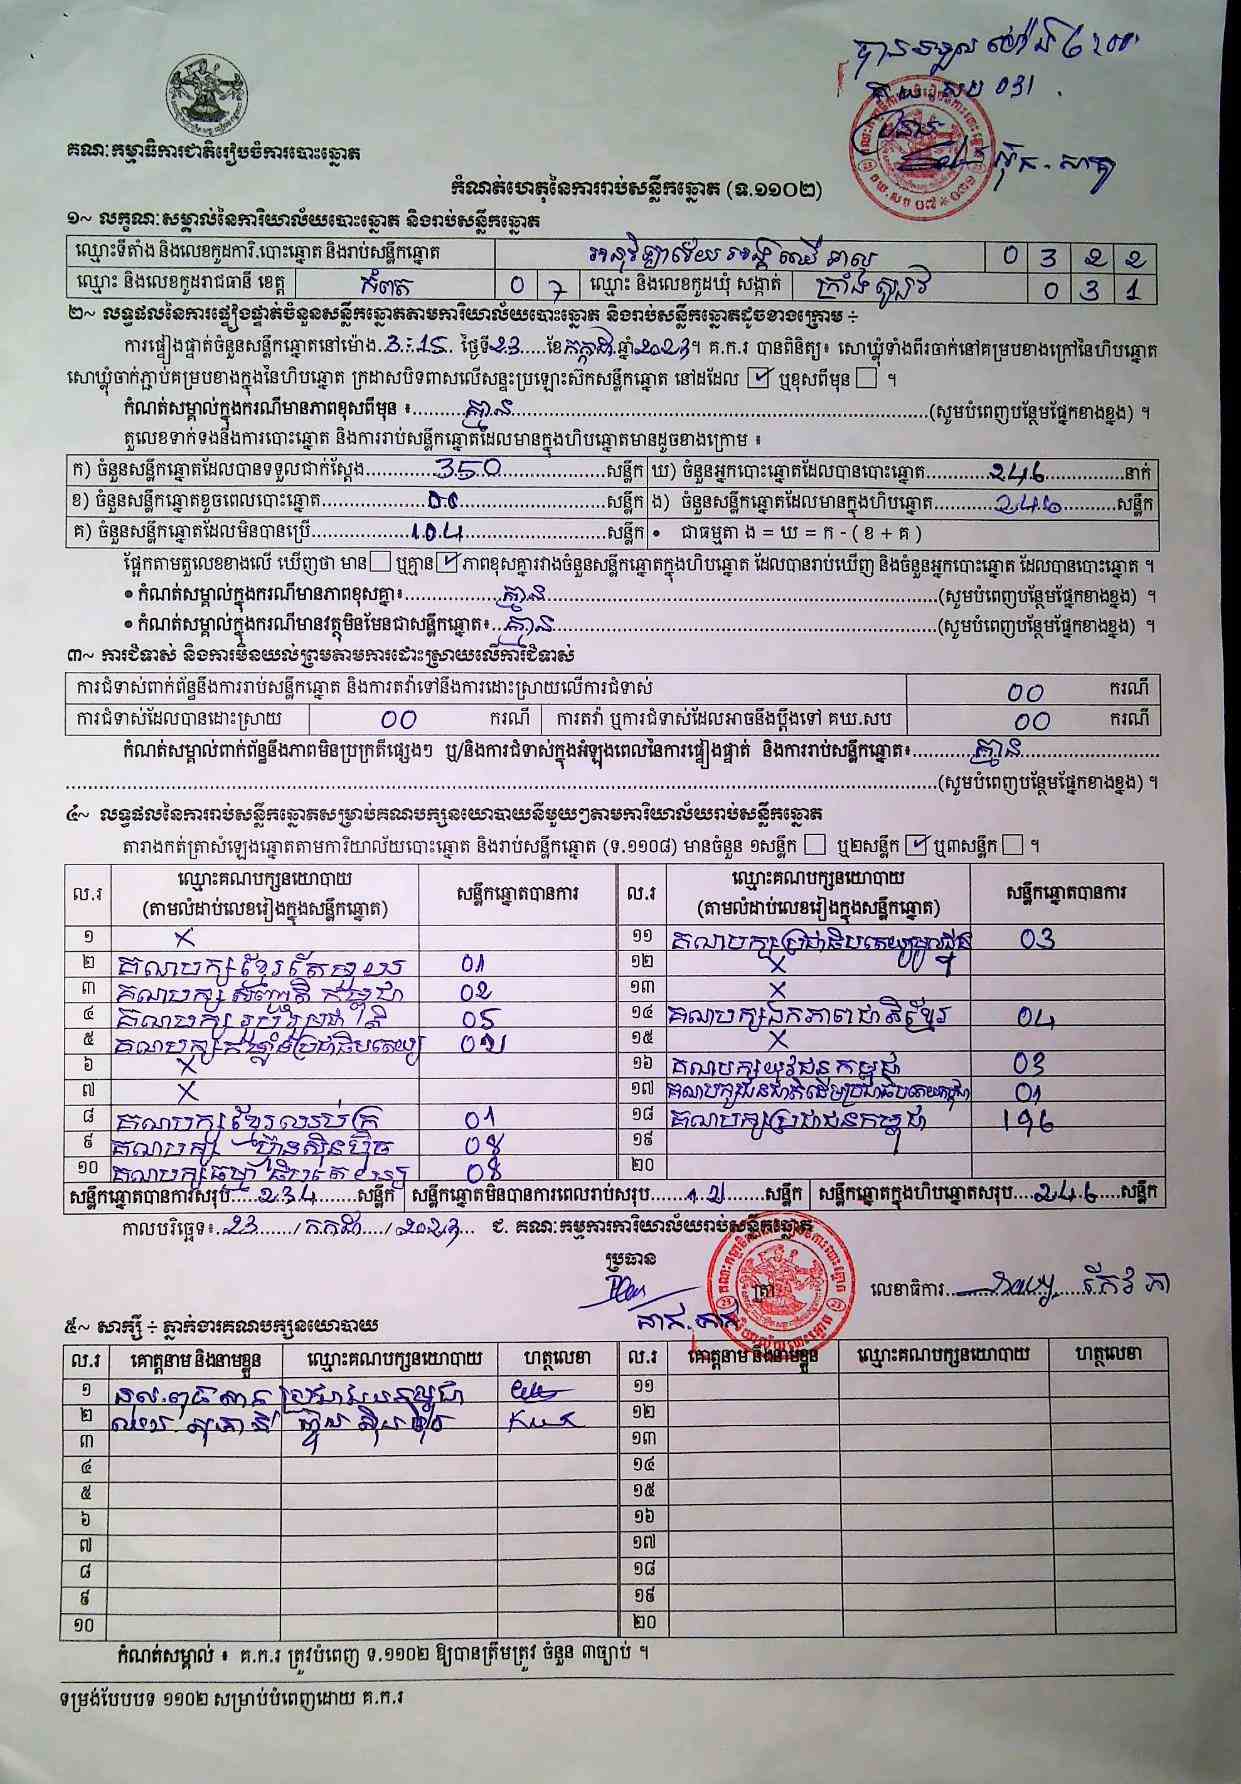 បានទទួល ម៉ោង
គឃ សប ០៣1
ប្រធាន
គណៈកម្មាធិការជាតិរៀបចំការបោះឆ្នោត
កំណត់ហេតុនៃការរាប់សន្លឹកឆ្នោត (ទ.១១០២)
១~ លក្ខណៈសម្គាល់នៃការិយាល័យបោះឆ្នោត និងរាប់សន្លឹកឆ្នោត
ឈ្មោះទីតាំង និងលេខកូដការិ.បោះឆ្នោត និងរាប់សន្លឹកឆ្នោត អនុវិទ្យាល័យ អង្គឈើទាល 0 3 2 2
ឈ្មោះ និងលេខកូដរាជធានី ខេត្ត កំពត 0 7 ឈ្មោះ និងលេខកូដឃុំ សង្កាត់ ក្រាំងស្បូវ 0 3 1
២~ លទ្ធផលនៃការផ្ទៀងផ្ទាត់ចំនួនសន្លឹកឆ្នោតតាមការិយាល័យបោះឆ្នោត និងរាប់សន្លឹកឆ្នោតដូចខាងក្រោម ÷
ការផ្ទៀងផ្ទាត់ចំនួនសន្លឹកឆ្នោតនៅម៉ោង 3:15 ថ្ងៃទី 23 ខែ កក្កដា ឆ្នាំ 2023 ។ គ.ក.រ បានពិនិត្យ៖ សោឃ្លុំទាំងពីរចាក់នៅគម្របខាងក្រៅនៃហិបឆ្នោត
សោឃ្លុំចាក់ភ្ជាប់គម្របខាងក្នុងនៃហិបឆ្នោត ក្រដាសបិទពាសលើសន្ទះប្រឡោះស៊កសន្លឹកឆ្នោត នៅដដែល ☑ ឬខុសពីមុន ☐ ។
កំណត់សម្គាល់ក្នុងករណីមានភាពខុសពីមុន ៖ គ្មាន (សូមបំពេញបន្ថែមផ្នែកខាងខ្នង) ។
តួលេខទាក់ទងនឹងការបោះឆ្នោត និងការរាប់សន្លឹកឆ្នោតដែលមានក្នុងហិបឆ្នោតមានដូចខាងក្រោម ៖
ក) ចំនួនសន្លឹកឆ្នោតដែលបានទទួលជាក់ស្តែង 350 សន្លឹក ឃ) ចំនួនអ្នកបោះឆ្នោតដែលបានបោះឆ្នោត 246 នាក់
ខ) ចំនួនសន្លឹកឆ្នោតខូចពេលបោះឆ្នោត 00 សន្លឹក ង) ចំនួនសន្លឹកឆ្នោតដែលមានក្នុងហិបឆ្នោត 246 សន្លឹក
គ) ចំនួនសន្លឹកឆ្នោតដែលមិនបានប្រើ 104 សន្លឹក • ជាធម្មតា ង = ឃ = ក - ( ខ + គ )
ផ្អែកតាមតួលេខខាងលើ ឃើញថា មាន ☐ ឬគ្មាន ☑ ភាពខុសគ្នារវាងចំនួនសន្លឹកឆ្នោតក្នុងហិបឆ្នោត ដែលបានរាប់ឃើញ និងចំនួនអ្នកបោះឆ្នោត ដែលបានបោះឆ្នោត ។
• កំណត់សម្គាល់ក្នុងករណីមានភាពខុសគ្នា៖ គ្មាន (សូមបំពេញបន្ថែមផ្នែកខាងខ្នង) ។
• កំណត់សម្គាល់ក្នុងករណីមានវត្ថុមិនមែនជាសន្លឹកឆ្នោត៖ គ្មាន (សូមបំពេញបន្ថែមផ្នែកខាងខ្នង) ។
៣~ ការជំទាស់ និងការមិនយល់ព្រមតាមការដោះស្រាយលើការជំទាស់
ការជំទាស់ពាក់ព័ន្ធនឹងការរាប់សន្លឹកឆ្នោត និងការតវ៉ាទៅនឹងការដោះស្រាយលើការជំទាស់ 00 ករណី
ការជំទាស់ដែលបានដោះស្រាយ 00 ករណី ការតវ៉ា ឬការជំទាស់ដែលអាចនឹងប្តឹងទៅ គឃ.សប 00 ករណី
កំណត់សម្គាល់ពាក់ព័ន្ធនឹងភាពមិនប្រក្រតីផ្សេងៗ ឬ/និងការជំទាស់ក្នុងអំឡុងពេលនៃការផ្ទៀងផ្ទាត់ និងការរាប់សន្លឹកឆ្នោត៖ គ្មាន
(សូមបំពេញបន្ថែមផ្នែកខាងខ្នង) ។
៤~ លទ្ធផលនៃការរាប់សន្លឹកឆ្នោតសម្រាប់គណបក្សនយោបាយនីមួយៗតាមការិយាល័យរាប់សន្លឹកឆ្នោត
តារាងកត់ត្រាសំឡេងឆ្នោតតាមការិយាល័យបោះឆ្នោត និងរាប់សន្លឹកឆ្នោត (ទ.១១០៨) មានចំនួន ១សន្លឹក ☐ ឬ២សន្លឹក ☑ ឬ៣សន្លឹក ☐ ។
ល.រ ឈ្មោះគណបក្សនយោបាយ (តាមលំដាប់លេខរៀងក្នុងសន្លឹកឆ្នោត) សន្លឹកឆ្នោតបានការ ល.រ ឈ្មោះគណបក្សនយោបាយ (តាមលំដាប់លេខរៀងក្នុងសន្លឹកឆ្នោត) សន្លឹកឆ្នោតបានការ
១ X ១១ គណបក្សប្រជាធិបតេយ្យមូលដ្ឋាន 03
២ គណបក្សខ្មែរតែមួយ 01 ១២ X
៣ គណបក្សសញ្ជាតិកម្ពុជា 02 ១៣ X
៤ គណបក្សរួបរួមជាតិ 05 ១៤ គណបក្សឯកភាពជាតិខ្មែរ 04
៥ គណបក្សកម្លាំងប្រជាធិបតេយ្យ 02 ១៥ X
៦ X ១៦ គណបក្សយុវជនកម្ពុជា 03
៧ X ១៧ គណបក្សជនជាតិដើមប្រជាធិបតេយ្យកម្ពុជា 01
៨ គណបក្សខ្មែរឈប់ក្រ 01 ១៨ គណបក្សប្រជាជនកម្ពុជា 196
៩ គណបក្សហ៊្វុនស៊ិនប៉ិច 08 ១៩
១០ គណបក្សធម្មាធិបតេយ្យ 08 ២០
សន្លឹកឆ្នោតបានការសរុប 234 សន្លឹក សន្លឹកឆ្នោតមិនបានការពេលរាប់សរុប 12 សន្លឹក សន្លឹកឆ្នោតក្នុងហិបឆ្នោតសរុប 246 សន្លឹក
កាលបរិច្ឆេទ៖ 23 / កក្កដា / 2023 ជ. គណៈកម្មការការិយាល័យរាប់សន្លឹកឆ្នោត
ប្រធាន ត្រា លេខាធិការ
៥~ សាក្សី ÷ ភ្នាក់ងារគណបក្សនយោបាយ
ល.រ គោត្តនាម និងនាមខ្លួន ឈ្មោះគណបក្សនយោបាយ ហត្ថលេខា ល.រ គោត្តនាម និងនាមខ្លួន ឈ្មោះគណបក្សនយោបាយ ហត្ថលេខា
១ ប្រជាជនកម្ពុជា ១១
២ ហ៊្វុនស៊ិនប៉ិច ១២
៣ ១៣
៤ ១៤
៥ ១៥
៦ ១៦
៧ ១៧
៨ ១៨
៩ ១៩
១០ ២០
កំណត់សម្គាល់ ៖ គ.ក.រ ត្រូវបំពេញ ទ.១១០២ ឱ្យបានត្រឹមត្រូវ ចំនួន ៣ច្បាប់ ។
ទម្រង់បែបបទ ១១០២ សម្រាប់បំពេញដោយ គ.ក.រ